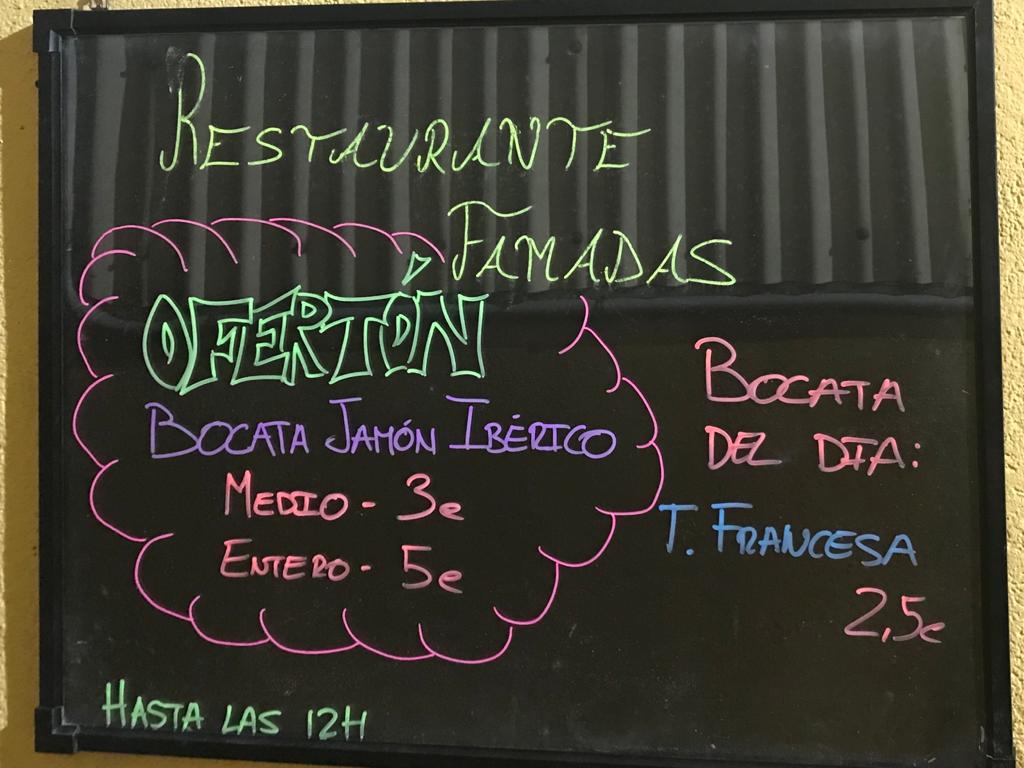 RESTAURANTE
FAMADAS
OFERTÓN
BOCATA JAMÓN IBÉRICO
MEDIO - 3e
ENTERO - 5e
BOCATA
DEL DIA:
T. FRANCESA
2,5e
HASTA LAS 12H